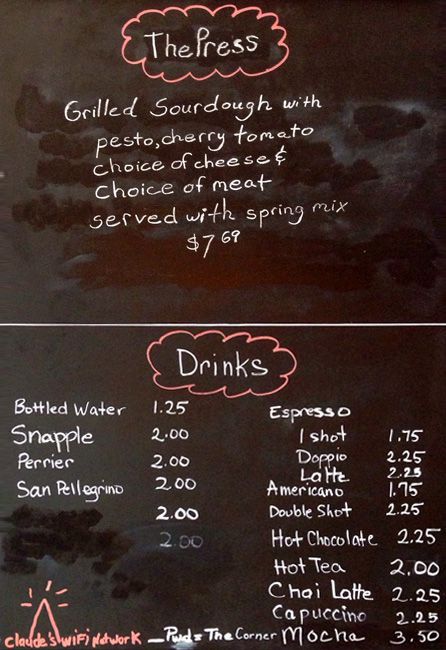 The Press
Grilled Sourdough with
pesto, cherry tomato
choice of cheese &
choice of meat
served with spring mix
$7.69
Drinks
Bottled Water 1.25
Snapple 2.00
Perrier 2.00
San Pellegrino 2.00
2.00
2.00
Espresso
1 shot 1.75
Doppio 2.25
Latte 2.25
Americano 1.75
Double Shot 2.25
Hot Chocolate 2.25
Hot Tea 2.00
Chai Latte 2.25
Capuccino 2.25
Mocha 3.50
Claude's WiFi Network - Pwd = The Corner